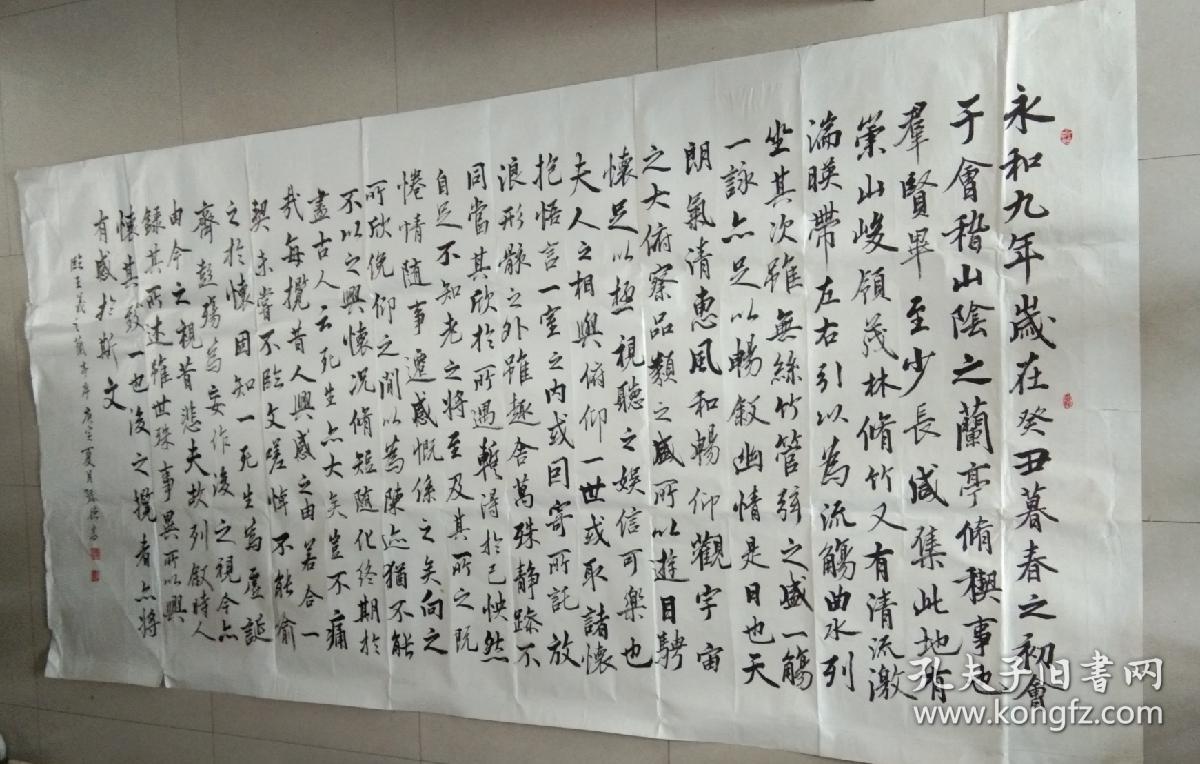 永和九年歲在癸丑暮春之初會
于會稽山陰之蘭亭脩禊事也
羣賢畢至少長咸集此地有
崇山峻領茂林脩竹又有清流激
湍暎帶左右引以為流觴曲水列
坐其次雖無絲竹管弦之盛一觴
一詠亦足以暢敘幽情是日也天
朗氣清惠風和暢仰觀宇宙
之大俯察品類之盛所以遊目騁
懷足以極視聽之娛信可樂也
夫人之相與俯仰一世或取諸懷
抱悟言一室之內或因寄所託放
浪形骸之外雖趣舍萬殊靜躁不
同當其欣於所遇蹔得於己怏然
自足不知老之將至及其所之既
惓情隨事遷感慨係之矣向之
所欣俛仰之閒以為陳迹猶不能
不以之興懷況脩短隨化終期於
盡古人云死生亦大矣豈不痛
哉每攬昔人興感之由若合一
契未嘗不臨文嗟悼不能喻
之於懷固知一死生為虛誕
齊彭殤為妄作後之視今亦
由今之視昔悲夫故列敘時人
錄其所述雖世殊事異所以興
懷其致一也後之攬者亦將
有感於斯文
臨王羲之蘭亭序庚寅夏月張書
孔夫子旧書网
www.kongfz.com